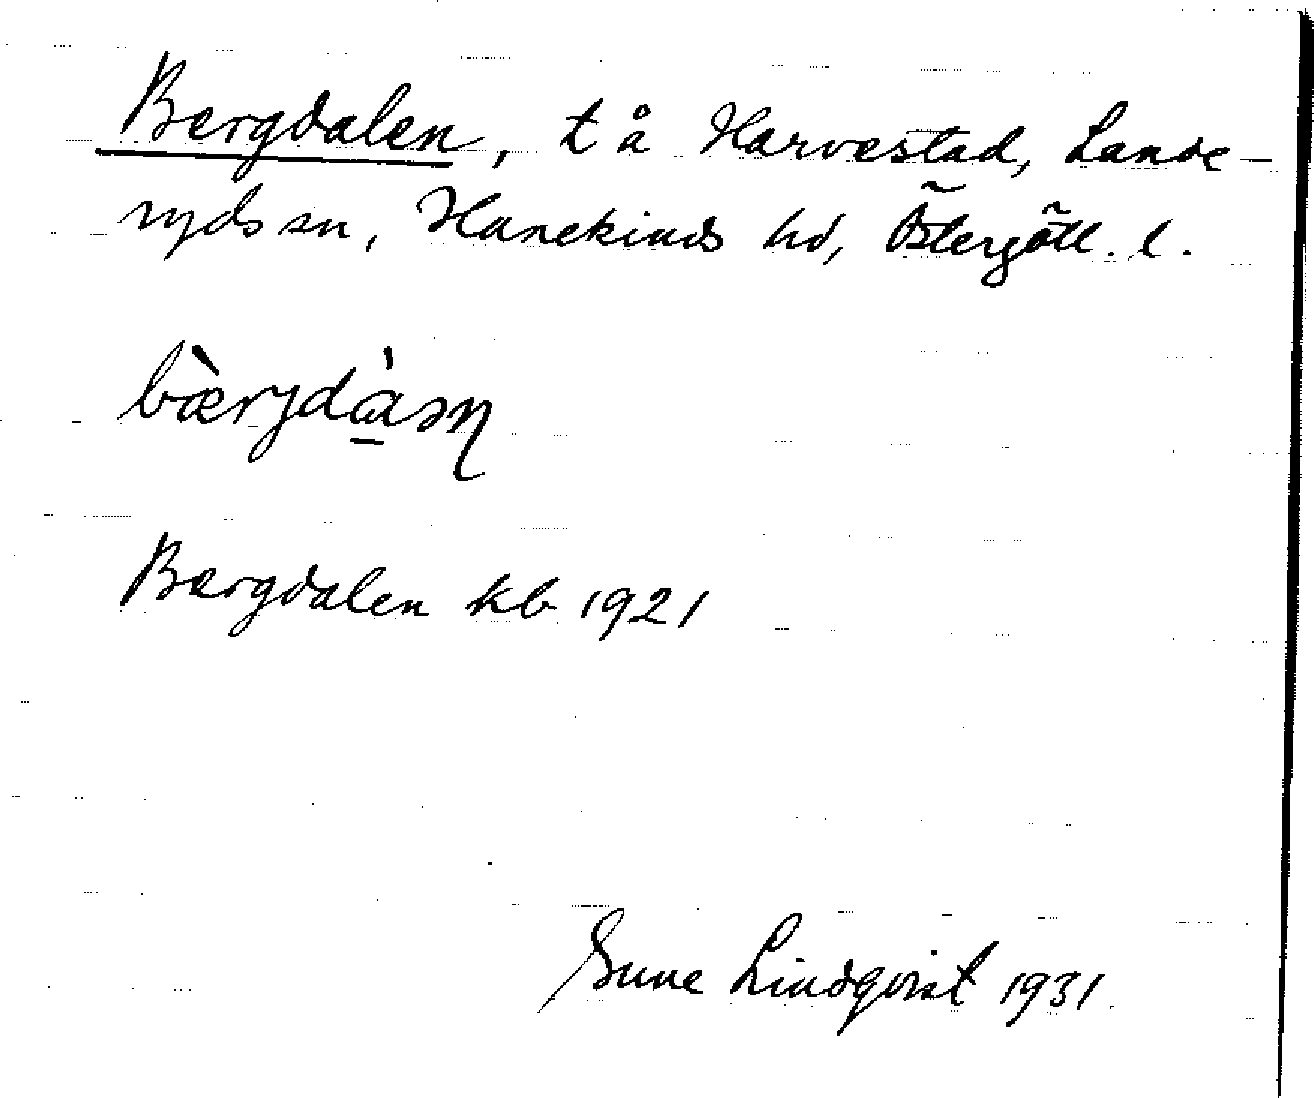 Bergdalen, t å Harvestad, Lande-
ryds sn, Hanekinds hd, Östergötl. l.
bæ̀rjdàan
Bergdalen kb 1921
Sune Lindqvist 1931